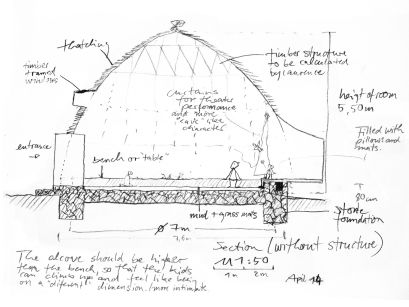 thatching
timber structure
to be calculated
by laurence
timber
framed
windows
curtains
for theatre
performance
and more
"cave" like
character
height of room
5,50m
Filled with
pillows and
mats.
entrance
bench or "table"
80cm
stone
foundation
mud + grass mats
Ø 7m
7,6m
Section (without structure)
M 1:50
1m 2m
April 14
The alcove should be higher
than the bench, so that the kids
can climb up and feel like being
on a "different" dimension / more intimate